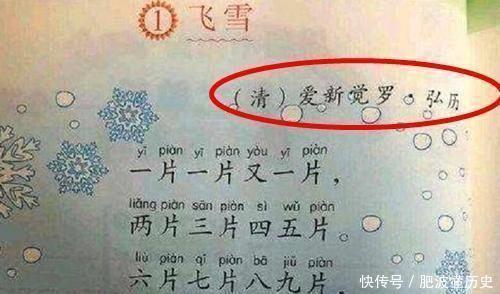 1 飞雪
（清）爱新觉罗·弘历
yī piàn yī piàn yòu yī piàn
一片一片又一片，
liǎng piàn sān piàn sì wǔ piàn
两片三片四五片
liù piàn qī piàn bā jiǔ piàn
六片七片八九片
快传号 / 肥波懂历史